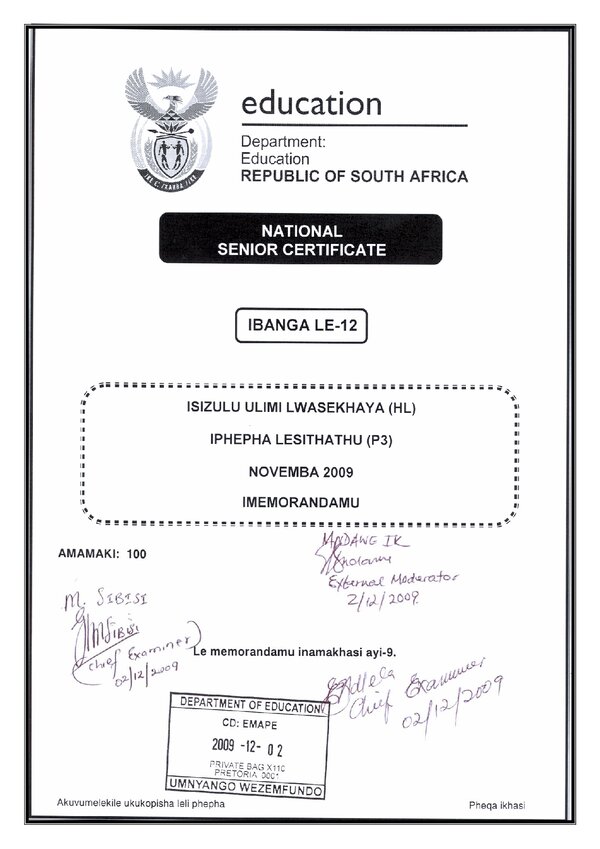 education
Department:
Education
REPUBLIC OF SOUTH AFRICA
NATIONAL
SENIOR CERTIFICATE
IBANGA LE-12
ISIZULU ULIMI LWASEKHAYA (HL)
IPHEPHA LESITHATHU (P3)
NOVEMBA 2009
IMEMORANDAMU
AMAMAKI: 100
External Moderator
2/12/2009
M. SIBISI
(Chief Examiner)
02/12/2009
Le memorandamu inamakhasi ayi-9.
Chief Examiner
02/12/2009
DEPARTMENT OF EDUCATION
CD: EMAPE
2009 -12- 02
PRIVATE BAG X110
PRETORIA 0001
UMNYANGO WEZEMFUNDO
Akuvumelekile ukukopisha leli phepha
Pheqa ikhasi